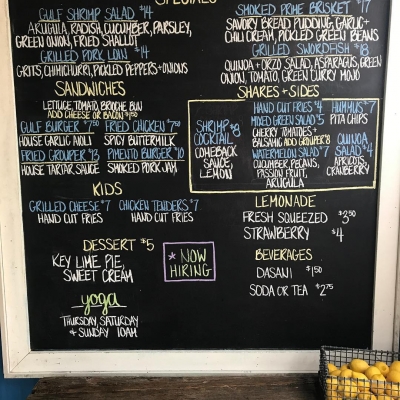 SPECIALS
GULF SHRIMP SALAD $14
ARUGULA, RADISH, CUCUMBER, PARSLEY,
GREEN ONION, FRIED SHALLOT
GRILLED PORK LOIN $14
GRITS, CHIMICHURRI, PICKLED PEPPERS + ONIONS
SMOKED PRIME BRISKET $17
SAVORY BREAD PUDDING, GARLIC +
CHILI CREAM, PICKLED GREEN BEANS
GRILLED SWORDFISH $18
QUINOA + ORZO SALAD, ASPARAGUS, GREEN
ONION, TOMATO, GREEN CURRY MOJO
SANDWICHES
LETTUCE, TOMATO, BRIOCHE BUN
ADD CHEESE OR BACON $1.50
GULF BURGER $7.50
HOUSE GARLIC AIOLI
FRIED CHICKEN $7.50
SPICY BUTTERMILK
FRIED GROUPER $13
HOUSE TARTAR SAUCE
PIMENTO BURGER $10
SMOKED PORK JAM
KIDS
GRILLED CHEESE $7
HAND CUT FRIES
CHICKEN TENDERS $7
HAND CUT FRIES
DESSERT $5
KEY LIME PIE,
SWEET CREAM
* NOW
HIRING
yoga
THURSDAY, SATURDAY
+ SUNDAY 10AM
SHARES + SIDES
SHRIMP $8
COCKTAIL
COMEBACK
SAUCE,
LEMON
HAND CUT FRIES $4
MIXED GREEN SALAD $5
CHERRY TOMATOES +
BALSAMIC ADD GROUPER $8
WATERMELON SALAD $7
CUCUMBER, PECANS,
PASSION FRUIT,
ARUGULA
HUMMUS $7
PITA CHIPS
QUINOA $4
SALAD
APRICOTS,
CRANBERRY
LEMONADE
FRESH SQUEEZED $3.50
STRAWBERRY $4
BEVERAGES
DASANI $1.50
SODA OR TEA $2.75